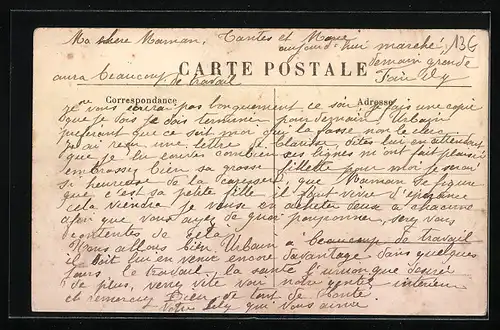 Ma chere Maman, Tantes et
aujourd'hui marché, 136
demain grande
aura beaucoup de travail
CARTE POSTALE
Correspondance Adresse
je vous pas longuement ce soir, j'ai une copie
que je dois je dois terminer pour demain Urbain
préférant que ce soit moi qui la fasse non le clerc
J'ai reçu une lettre de Clarisse, dites lui en attendant
que je lui combien ces lignes m'ont fait plaisir
embrassez bien sa grosse fillette pour moi je serai
si heureuse de la que Maman se figure
que c'est sa petite fille il faut vivre d'espérance
cela viendra je vous en deux à chacune
afin que vous ayez de quoi pouponner, serez vous
contentes de cela?
Nous allons bien Urbain a beaucoup de travail
il doit lui en venir encore davantage dans quelques
jours. le travail, la santé l'union que désirer
de plus, venez vite voir notre gentil intérieur
et remerciez Dieu de tant de bonté.
Votre Lily qui vous aime